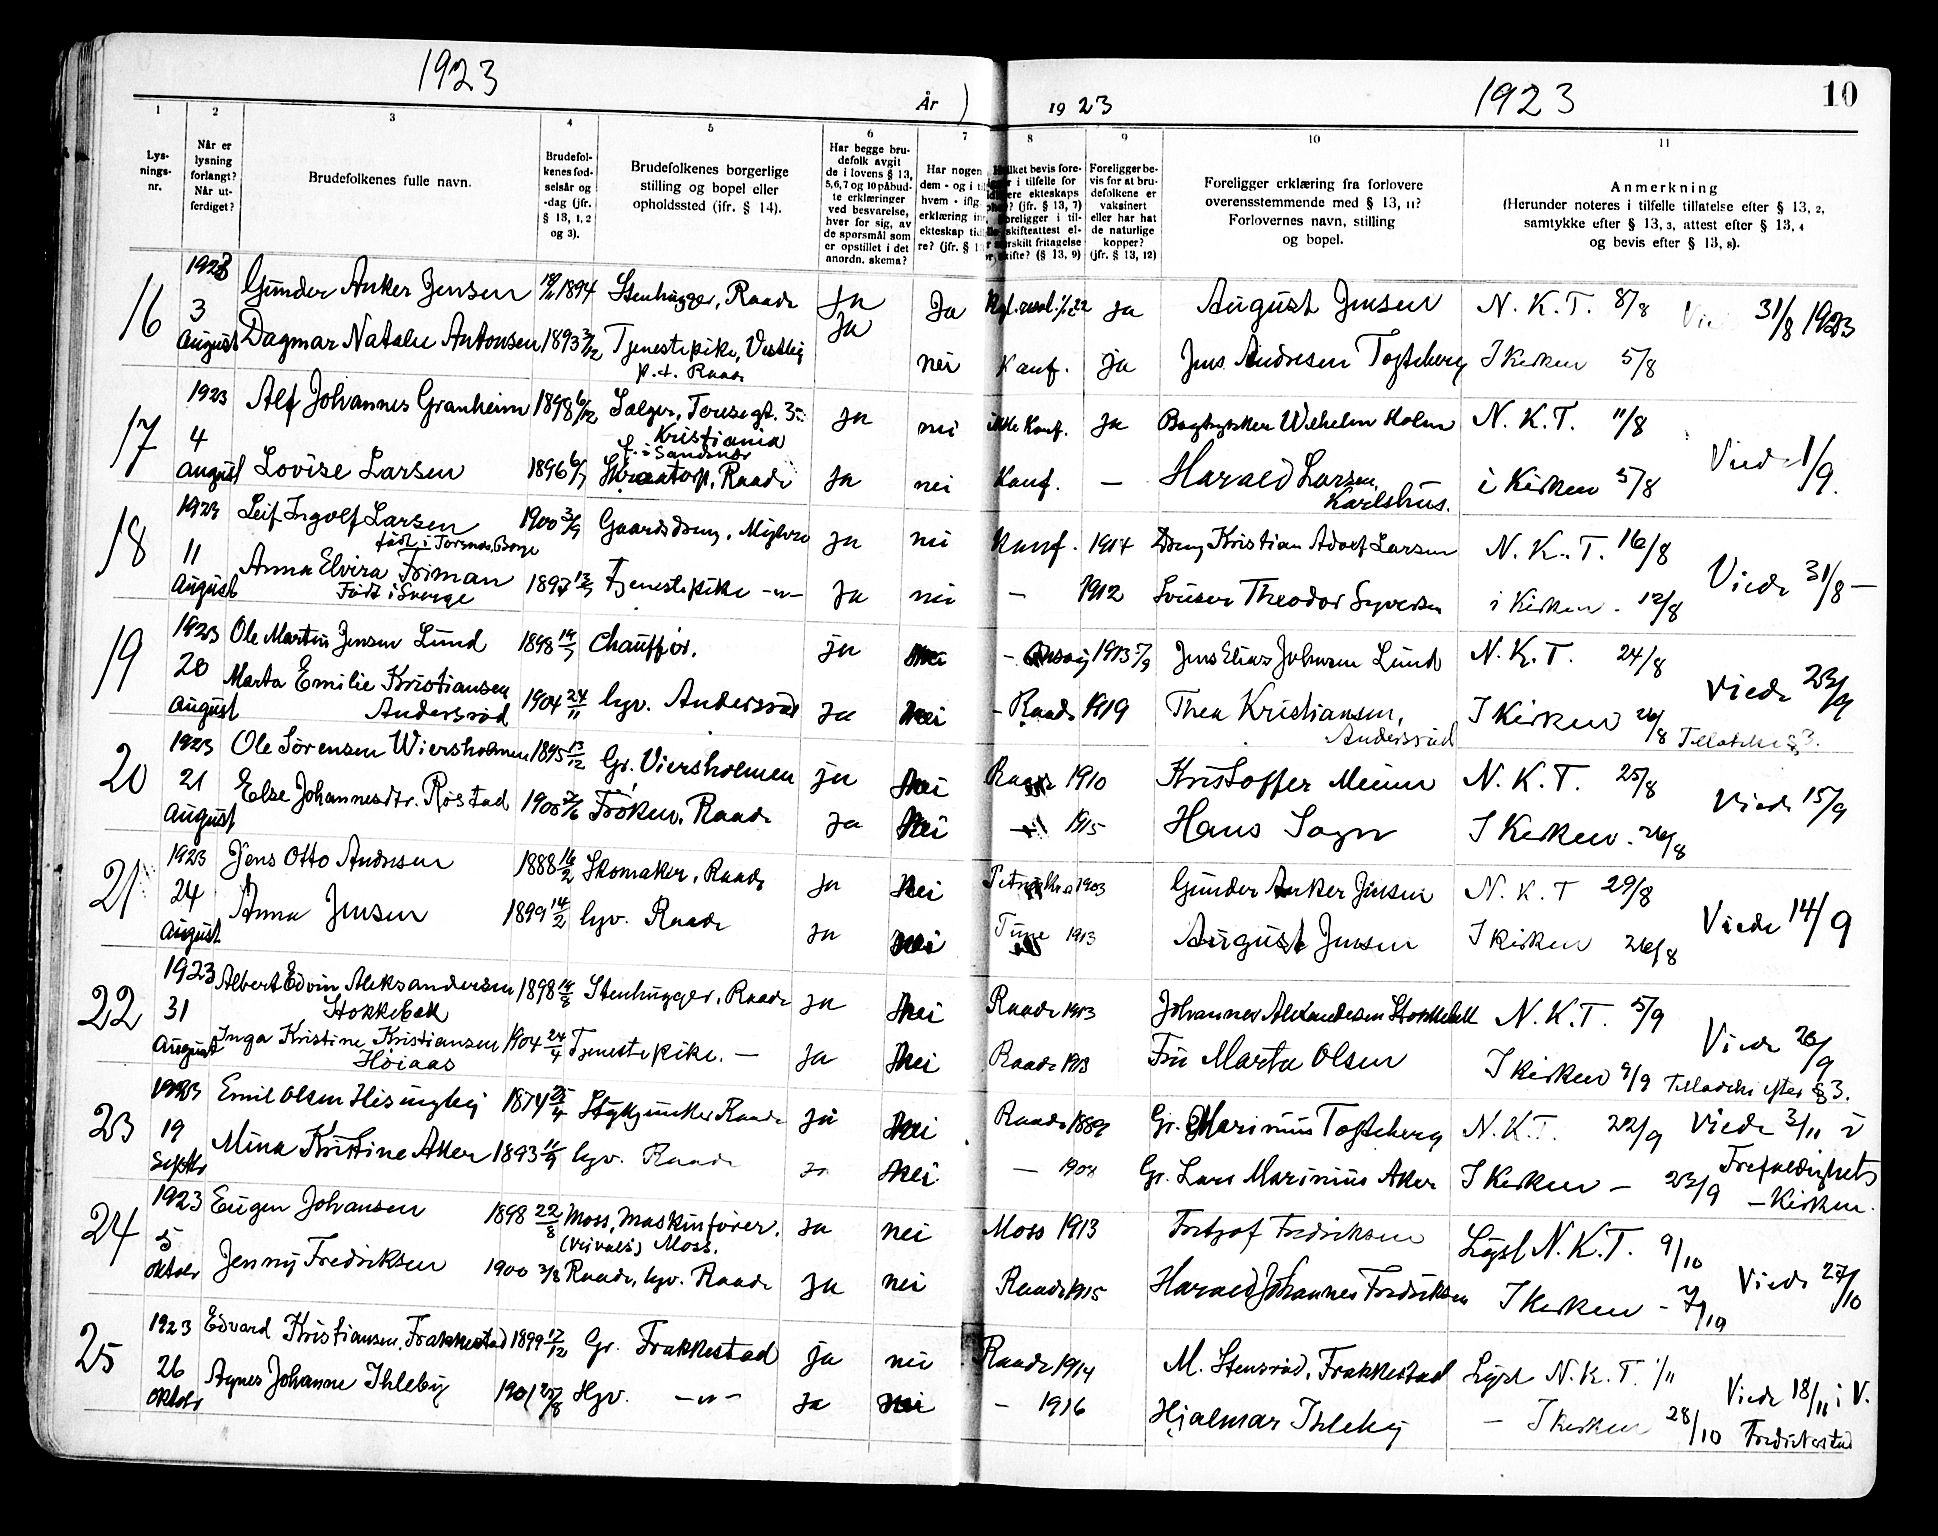 1923
År
1923
1923
10
1
2
3
4
5
6
7
8
9
10
11
Lys-
nings-
nr.
Når er
lysning
forlangt?
Når ut-
ferdiget?
Brudefolkenes fulle navn.
Brudefol-
kenes fød-
selsår og
-dag (jfr.
§ 13, 1, 2
og 3).
Brudefolkenes borgerlige
stilling og bopel eller
opholdssted (ifr. § 14).
Har begge bru-
defolk avgit
de i lovens § 13,
5,6,7 og 10 påbud-
te erklæringer
ved besvarelse,
hver for sig, av
de spørsmål som
er opstillet i det
anordn. skema?
Har nogen
dem - og i
hvem - iflg
erklæring
ekteskap
re? (jfr. §
bevis fore-
i tilfelle for
ekteskaps
(jfr. § 13, 7)
i til-
skifteattest el-
fritagelse
skifte? (§ 13, 9)
Foreligger be-
vis for at bru-
defolkene er
vaksinert
eller har hat
de naturlige
kopper?
(jfr. § 13, 12)
Foreligger erklæring fra forlovere
overensstemmende med § 13, 11?
Forlovernes navn, stilling
og bopel.
Anmerkning
(Herunder noteres i tilfelle tillatelse efter § 13, 2,
samtykke efter § 13, 3, attest efter § 13, 4
og bevis efter § 13, 8).
16 1923 3 August Gunder Anker Jensen 1894 Stenhugger, Raade Ja Ja ja August Jensen N. K. T. 8/8 31/8 1923
Dagmar Natalie Antonsen 1893 Tjenestepike, Vestby Ja nei Konf. ja Jens Andresen Togteberg I Kirken 5/8
p.t. Raade
17 1923 4 August Alf Johannes Granheim 1898 6/12 Sælger, Toresegt. 35 ja nei ikke Konf. ja Wilhelm Holm N. K. T. 11/8 Viede 1/9.
Kristiania
f. i Sandnær
Lovise Larsen 1896 Raade ja nei Konf. — Harald Larsen, i Kirken 5/8
Karlshus.
18 1923 11 August Leif Ingolf Larsen 1900 3/9 Gaardsdreng, ja nei Konf. 1914 Kristian Adolf Larsen N. K. T. 16/8 Viede 31/8 —
født i Torsnes, Borge
Anna Elvira Friman 1897 Tjenestepike -"- ja nei - 1912 Theodor Syversen i Kirken. 12/8
Født i Sverge
19 1923 20 August Ole Martin Jensen Lund 1898 19/7 Chauffør. ja nei - Onsøy 1913 Jens Elias Johnsen Lund N. K. T. 24/8 Viede 23/9
Marta Emilie Kristiansen 1904 24/11 hjv. Andersrød ja nei - Raade 1919 Thea Kristiansen, I Kirken 26/8 Tilladelse § 3.
Andersrød
Andersrød
20 1923 21 August Ole Sørensen Wiersholmen 1895 13/12 Gr. Viersholmen ja nei Raade 1910 Kristoffer N. K. T. 25/8 Viede 15/9
Else Johannesdtr. Røstad 1900 Frøken, Raade ja nei — 1915 Hans Sogn I Kirken. 26/8
21 1923 24 August Jens Otto Andresen 1888 16/2 Skomaker, Raade ja nei 1903 Gunder Anker Jensen N. K. T 29/8 Viede 14/9
Anna Jensen 1899 14/2 hjv. Raade ja nei Tune 1913 August Jensen I Kirken 26/8
22 1923 31 August Albert Edvin Aleksandersen 1898 14/8 Stenhugger, Raade ja nei Raade 1913 Johannes Alexandersen Stokkebæk N. K. T. 5/9 Viede 26/9
Stokkebæk
Inga Kristine Kristiansen 1904 24/4 Tjenestepike. — ja nei Raade Fru Marta Olsen I Kirken 9/9 Tilladelse efter § 3.
Høiaas
23 1923 19 Septbr Emil Olsen 1874 25/4 Raade ja nei Raade 1889 Gr. Marinius Togteberg N.K.T. 22/9 Viede 3/11 i
Mina Kristine Aker 1893 hjv. Raade ja nei — Gr. Lars Marinius Aker I Kirken — 23/9 Trefoldighets
— Kirken.
24 1923 5 oktobr Eugen Johansen 1898 22/8 Moss, Maskinfører. ja nei Moss 1913 Fritjof Fredriksen Lyst N. K. T. 9/10 Viede 27/10
Moss.
Jenny Fredriksen 1900 Raade, hjv. Raade ja nei Raade 1915 Harald Johannes Fredriksen I Kirken — 7/10
25 1923 26 oktobr Edvard Kristiansen, Frakkestad 1899 17/12 Gr. Frakkestad ja nei Raade 1914 M. Stensrød, Frakkestad Lyst N. K. T. 1/11 Viede 18/11 i V.
Agnes Johanne Ihleby 1901 Hjv. -"- ja nei - 1916 Hjalmar Ihleby — I kirken 28/10 Fredrikstad